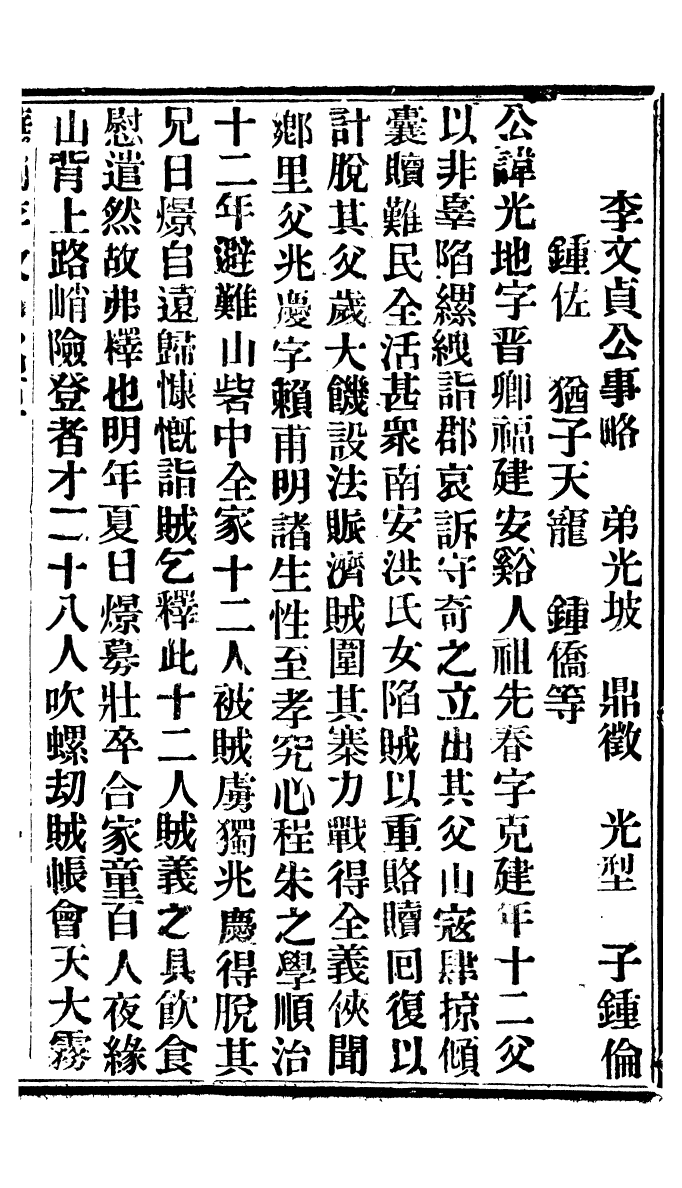 李文貞公事略　弟光坡　鼎徵　光型　子鍾倫
鍾佐　猶子天寵　鍾僑等
公諱光地字晋卿福建安谿人祖先春字克建年十二父
以非辜陷縲絏詣郡哀訴守奇之立出其父山寇肆掠傾
囊贖難民全活甚衆南安洪氏女陷賊以重賂贖回復以
計脫其父歲大饑設法賑濟賊圍其寨力戰得全義俠聞
鄉里父兆慶字賴甫明諸生性至孝究心程朱之學順治
十二年避難山砦中全家十二人被賊虜獨兆慶得脫其
兄日燝自遠歸慷慨詣賊乞釋此十二人賊義之具飲食
慰遣然故弗釋也明年夏日燝募壯卒合家童百人夜緣
山背上路峭險登者才二十八人吹螺刧賊帳會天大霧